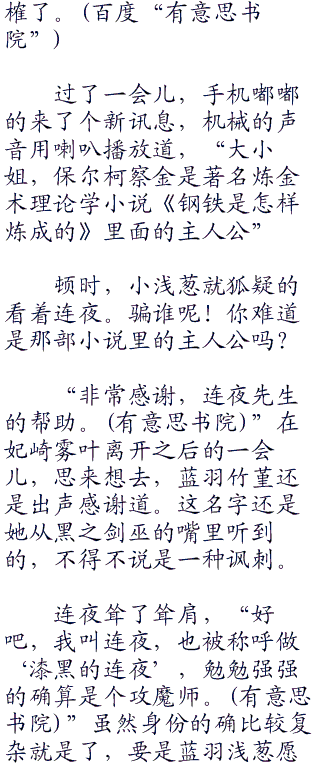 榨了。(百度“有意思书
院”)
过了一会儿，手机嘟嘟
的来了个新讯息，机械的声
音用喇叭播放道，“大小
姐，保尔柯察金是著名炼金
术理论学小说《钢铁是怎样
炼成的》里面的主人公”
顿时，小浅葱就狐疑的
看着连夜。骗谁呢！你难道
是那部小说里的主人公吗？
“非常感谢，连夜先生
的帮助。(有意思书院)”在
妃崎雾叶离开之后的一会
儿，思来想去，蓝羽竹堇还
是出声感谢道。这名字还是
她从黑之剑巫的嘴里听到
的，不得不说是一种讽刺。
连夜耸了耸肩，“好
吧，我叫连夜，也被称呼做
‘漆黑的连夜’，勉勉强强
的确算是个攻魔师。(有意思
书院)”虽然身份的确比较复
杂就是了，要是蓝羽浅葱愿